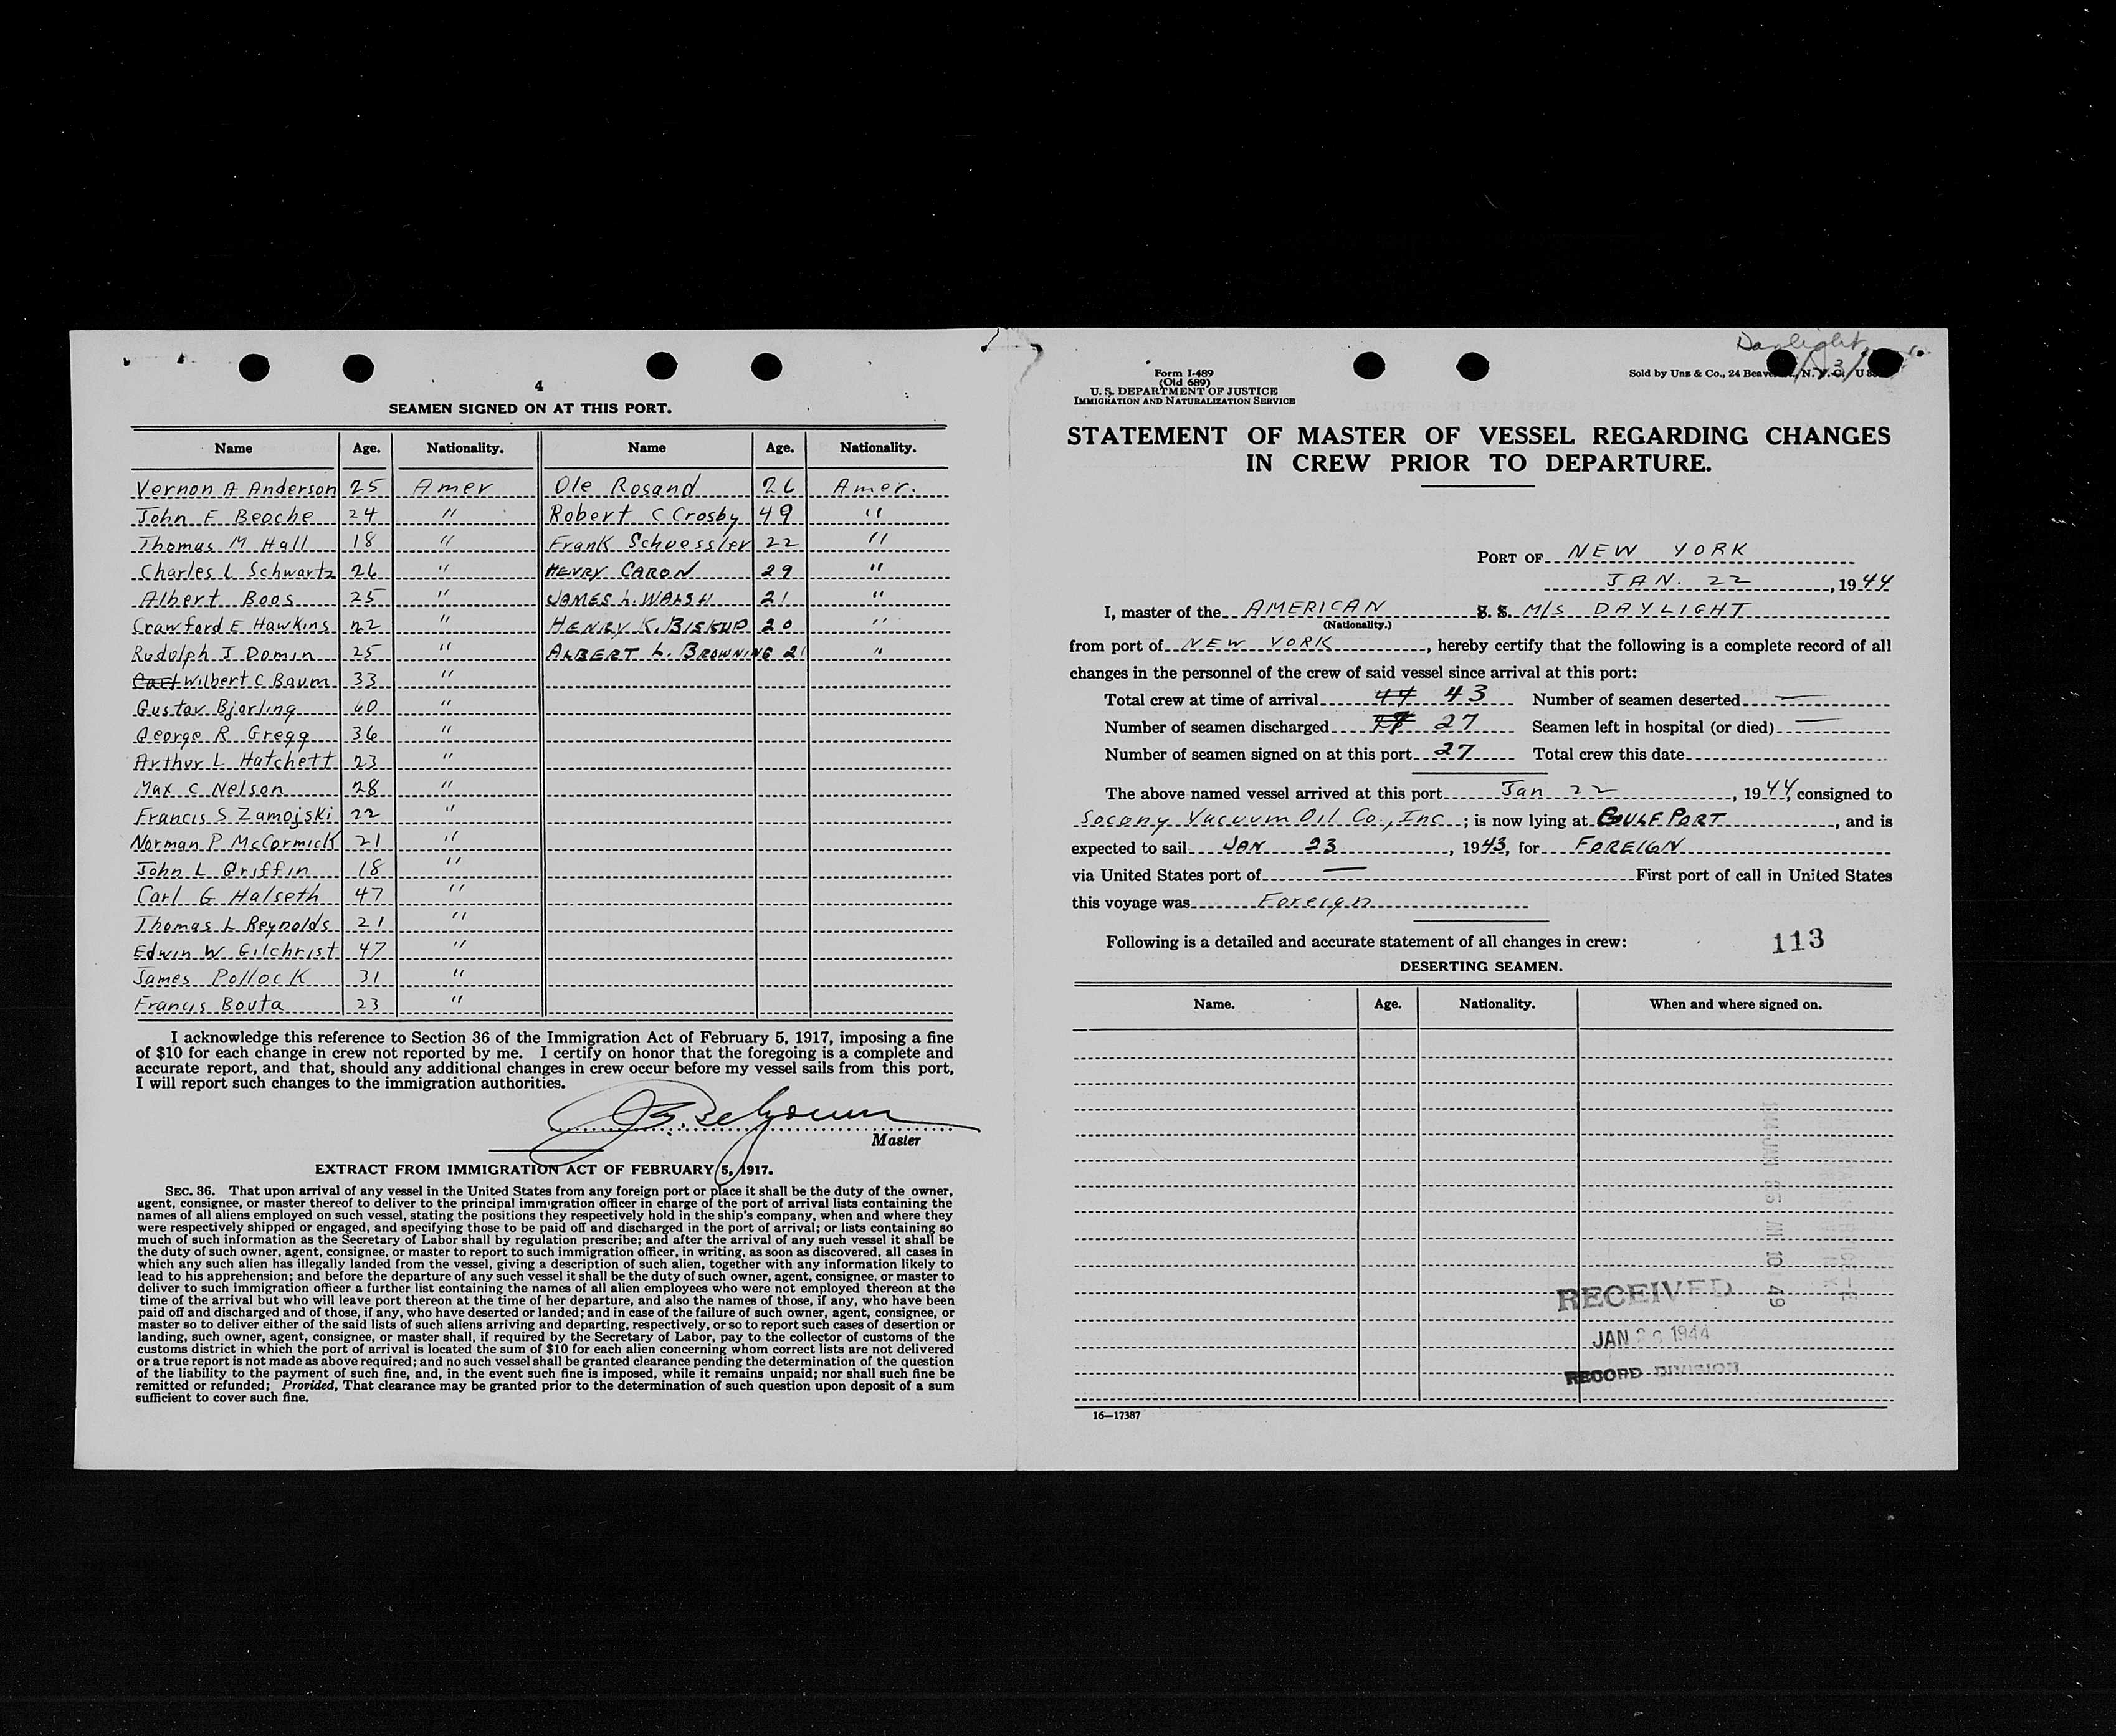 4
SEAMEN SIGNED ON AT THIS PORT.
Name Age. Nationality. Name Age. Nationality.
Vernon A Anderson 25 Amer Ole Rosand 26 Amer.
John F Beoche 24 " Robert C Crosby 49 "
Thomas M Hall 18 " Frank Schuessler 22 "
Charles L Schwartz 26 " HENRY CARON 29 "
Albert Boos 25 " JAMES L. WALSH 21 "
Crawford E Hawkins 22 " HENRY K. BISKUP 20 "
Rudolph J Domin 25 " ALBERT L. BROWNING 21 "
Carl Wilbert C Baum 33 "
Gustav Bjorling 60 "
George R Gregg 36 "
Arthur L Hatchett 23 "
Max C Nelson 28 "
Francis S Zamojski 22 "
Norman P McCormick 21 "
John L Griffin 18 "
Carl G Halseth 47 "
Thomas L Reynolds 21 "
Edwin W Gilchrist 47 "
James Pollock 31 "
Francis Bouta 23 "
I acknowledge this reference to Section 36 of the Immigration Act of February 5, 1917, imposing a fine
of $10 for each change in crew not reported by me. I certify on honor that the foregoing is a complete and
accurate report, and that, should any additional changes in crew occur before my vessel sails from this port,
I will report such changes to the immigration authorities.
Master
EXTRACT FROM IMMIGRATION ACT OF FEBRUARY 5, 1917.
SEC. 36. That upon arrival of any vessel in the United States from any foreign port or place it shall be the duty of the owner,
agent, consignee, or master thereof to deliver to the principal immigration officer in charge of the port of arrival lists containing the
names of all aliens employed on such vessel, stating the positions they respectively hold in the ship's company, when and where they
were respectively shipped or engaged, and specifying those to be paid off and discharged in the port of arrival; or lists containing so
much of such information as the Secretary of Labor shall by regulation prescribe; and after the arrival of any such vessel it shall be
the duty of such owner, agent, consignee, or master to report to such immigration officer, in writing, as soon as discovered, all cases in
which any such alien has illegally landed from the vessel, giving a description of such alien, together with any information likely to
lead to his apprehension; and before the departure of any such vessel it shall be the duty of such owner, agent, consignee, or master to
deliver to such immigration officer a further list containing the names of all alien employees who were not employed thereon at the
time of the arrival but who will leave port thereon at the time of her departure, and also the names of those, if any, who have been
paid off and discharged and of those, if any, who have deserted or landed; and in case of the failure of such owner, agent, consignee, or
master so to deliver either of the said lists of such aliens arriving and departing, respectively, or so to report such cases of desertion or
landing, such owner, agent, consignee, or master shall, if required by the Secretary of Labor, pay to the collector of customs of the
customs district in which the port of arrival is located the sum of $10 for each alien concerning whom correct lists are not delivered
or a true report is not made as above required; and no such vessel shall be granted clearance pending the determination of the question
of the liability to the payment of such fine, and, in the event such fine is imposed, while it remains unpaid; nor shall such fine be
remitted or refunded; Provided, That clearance may be granted prior to the determination of such question upon deposit of a sum
sufficient to cover such fine.
Daylight
Form I-489
(Old 689)
U. S. DEPARTMENT OF JUSTICE
IMMIGRATION AND NATURALIZATION SERVICE
Sold by Unz & Co., 24 Beaver N. Y. C.
STATEMENT OF MASTER OF VESSEL REGARDING CHANGES
IN CREW PRIOR TO DEPARTURE.
PORT OF NEW YORK
JAN. 22, 1944
I, master of the AMERICAN S. S. M/S DAYLIGHT
(Nationality.)
from port of NEW YORK, hereby certify that the following is a complete record of all
changes in the personnel of the crew of said vessel since arrival at this port:
Total crew at time of arrival 44 43 Number of seamen deserted —
Number of seamen discharged 27 Seamen left in hospital (or died) —
Number of seamen signed on at this port 27 Total crew this date
The above named vessel arrived at this port Jan 22, 1944, consigned to
Socony Vacuum Oil Co., Inc; is now lying at GULFPORT, and is
expected to sail JAN 23, 1943, for FOREIGN
via United States port of — First port of call in United States
this voyage was Foreign
Following is a detailed and accurate statement of all changes in crew:
113
DESERTING SEAMEN.
Name. Age. Nationality. When and where signed on.
RECEIVED
JAN 1944
RECORD DIVISION
16—17387